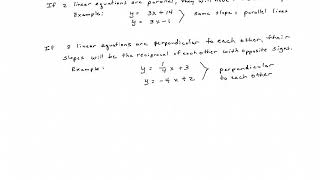 If 2 linear equations are parallel, they will have
Example: y = 3x + 14
y = 3x - 1 > same slope: parallel lines
If 2 linear equations are perpendicular to each other, their
slopes will be the reciprocal of each other with opposite signs.
Example: y = 1/4 x + 3
y = -4x + 2 > perpendicular to each other